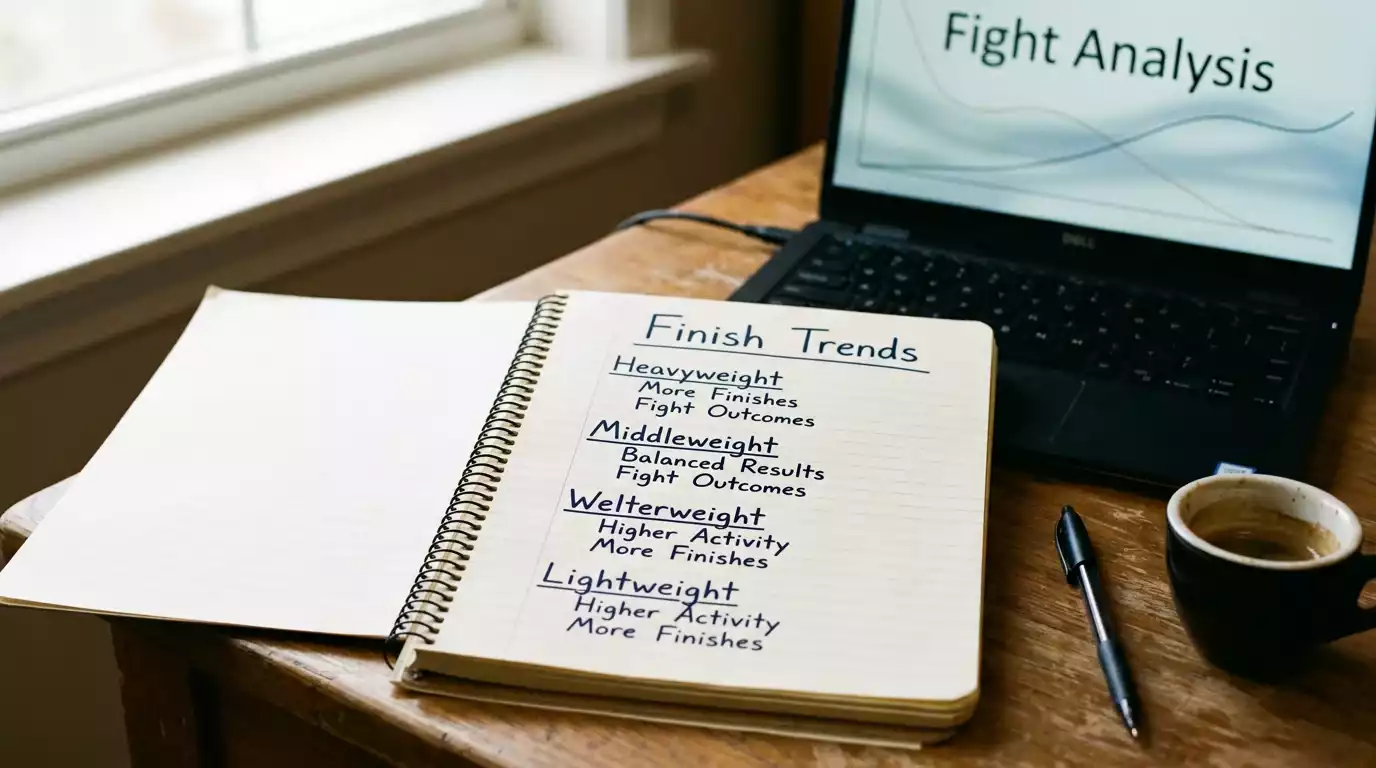 Fight Analysis
Finish Trends
Heavyweight
More Finishes
Fight Outcomes
Middleweight
Balanced Results
Fight Outcomes
Welterweight
Higher Activity
More Finishes
Lightweight
Higher Activity
More Finishes
DELL